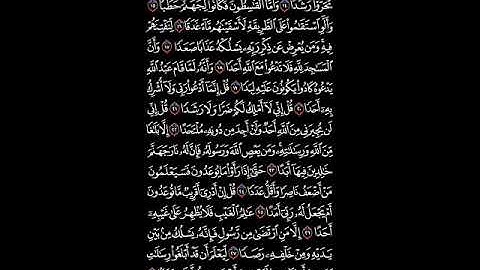 تَحَرَّوۡاْ رَشَدٗا ١٤ وَأَمَّا ٱلۡقَٰسِطُونَ فَكَانُواْ لِجَهَنَّمَ حَطَبٗا ١٥
وَأَلَّوِ ٱسۡتَقَٰمُواْ عَلَى ٱلطَّرِيقَةِ لَأَسۡقَيۡنَٰهُم مَّآءً غَدَقٗا ١٦ لِّنَفۡتِنَهُمۡ
فِيهِۚ وَمَن يُعۡرِضۡ عَن ذِكۡرِ رَبِّهِۦ يَسۡلُكۡهُ عَذَابٗا صَعَدٗا ١٧ وَأَنَّ
ٱلۡمَسَٰجِدَ لِلَّهِ فَلَا تَدۡعُواْ مَعَ ٱللَّهِ أَحَدٗا ١٨ وَأَنَّهُۥ لَمَّا قَامَ عَبۡدُ ٱللَّهِ
يَدۡعُوهُ كَادُواْ يَكُونُونَ عَلَيۡهِ لِبَدٗا ١٩ قُلۡ إِنَّمَآ أَدۡعُواْ رَبِّي وَلَآ أُشۡرِكُ
بِهِۦٓ أَحَدٗا ٢٠ قُلۡ إِنِّي لَآ أَمۡلِكُ لَكُمۡ ضَرّٗا وَلَا رَشَدٗا ٢١ قُلۡ إِنِّي
لَن يُجِيرَنِي مِنَ ٱللَّهِ أَحَدٞ وَلَنۡ أَجِدَ مِن دُونِهِۦ مُلۡتَحَدًا ٢٢ إِلَّا بَلَٰغٗا
مِّنَ ٱللَّهِ وَرِسَٰلَٰتِهِۦۚ وَمَن يَعۡصِ ٱللَّهَ وَرَسُولَهُۥ فَإِنَّ لَهُۥ نَارَ جَهَنَّمَ
خَٰلِدِينَ فِيهَآ أَبَدًا ٢٣ حَتَّىٰٓ إِذَا رَأَوۡاْ مَا يُوعَدُونَ فَسَيَعۡلَمُونَ
مَنۡ أَضۡعَفُ نَاصِرٗا وَأَقَلُّ عَدَدٗا ٢٤ قُلۡ إِنۡ أَدۡرِيٓ أَقَرِيبٞ مَّا تُوعَدُونَ
أَمۡ يَجۡعَلُ لَهُۥ رَبِّيٓ أَمَدًا ٢٥ عَٰلِمُ ٱلۡغَيۡبِ فَلَا يُظۡهِرُ عَلَىٰ غَيۡبِهِۦٓ
أَحَدًا ٢٦ إِلَّا مَنِ ٱرۡتَضَىٰ مِن رَّسُولٖ فَإِنَّهُۥ يَسۡلُكُ مِنۢ بَيۡنِ
يَدَيۡهِ وَمِنۡ خَلۡفِهِۦ رَصَدٗا ٢٧ لِّيَعۡلَمَ أَن قَدۡ أَبۡلَغُواْ رِسَٰلَٰتِ